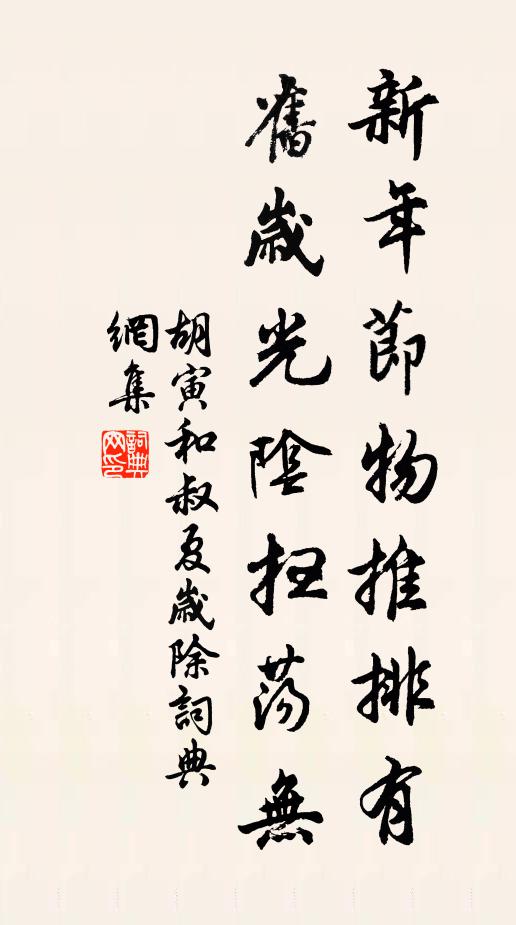 新年節物推排有
舊歲光陰掃蕩無
胡寅和叔夏歲除詞典
網集
詞典網印